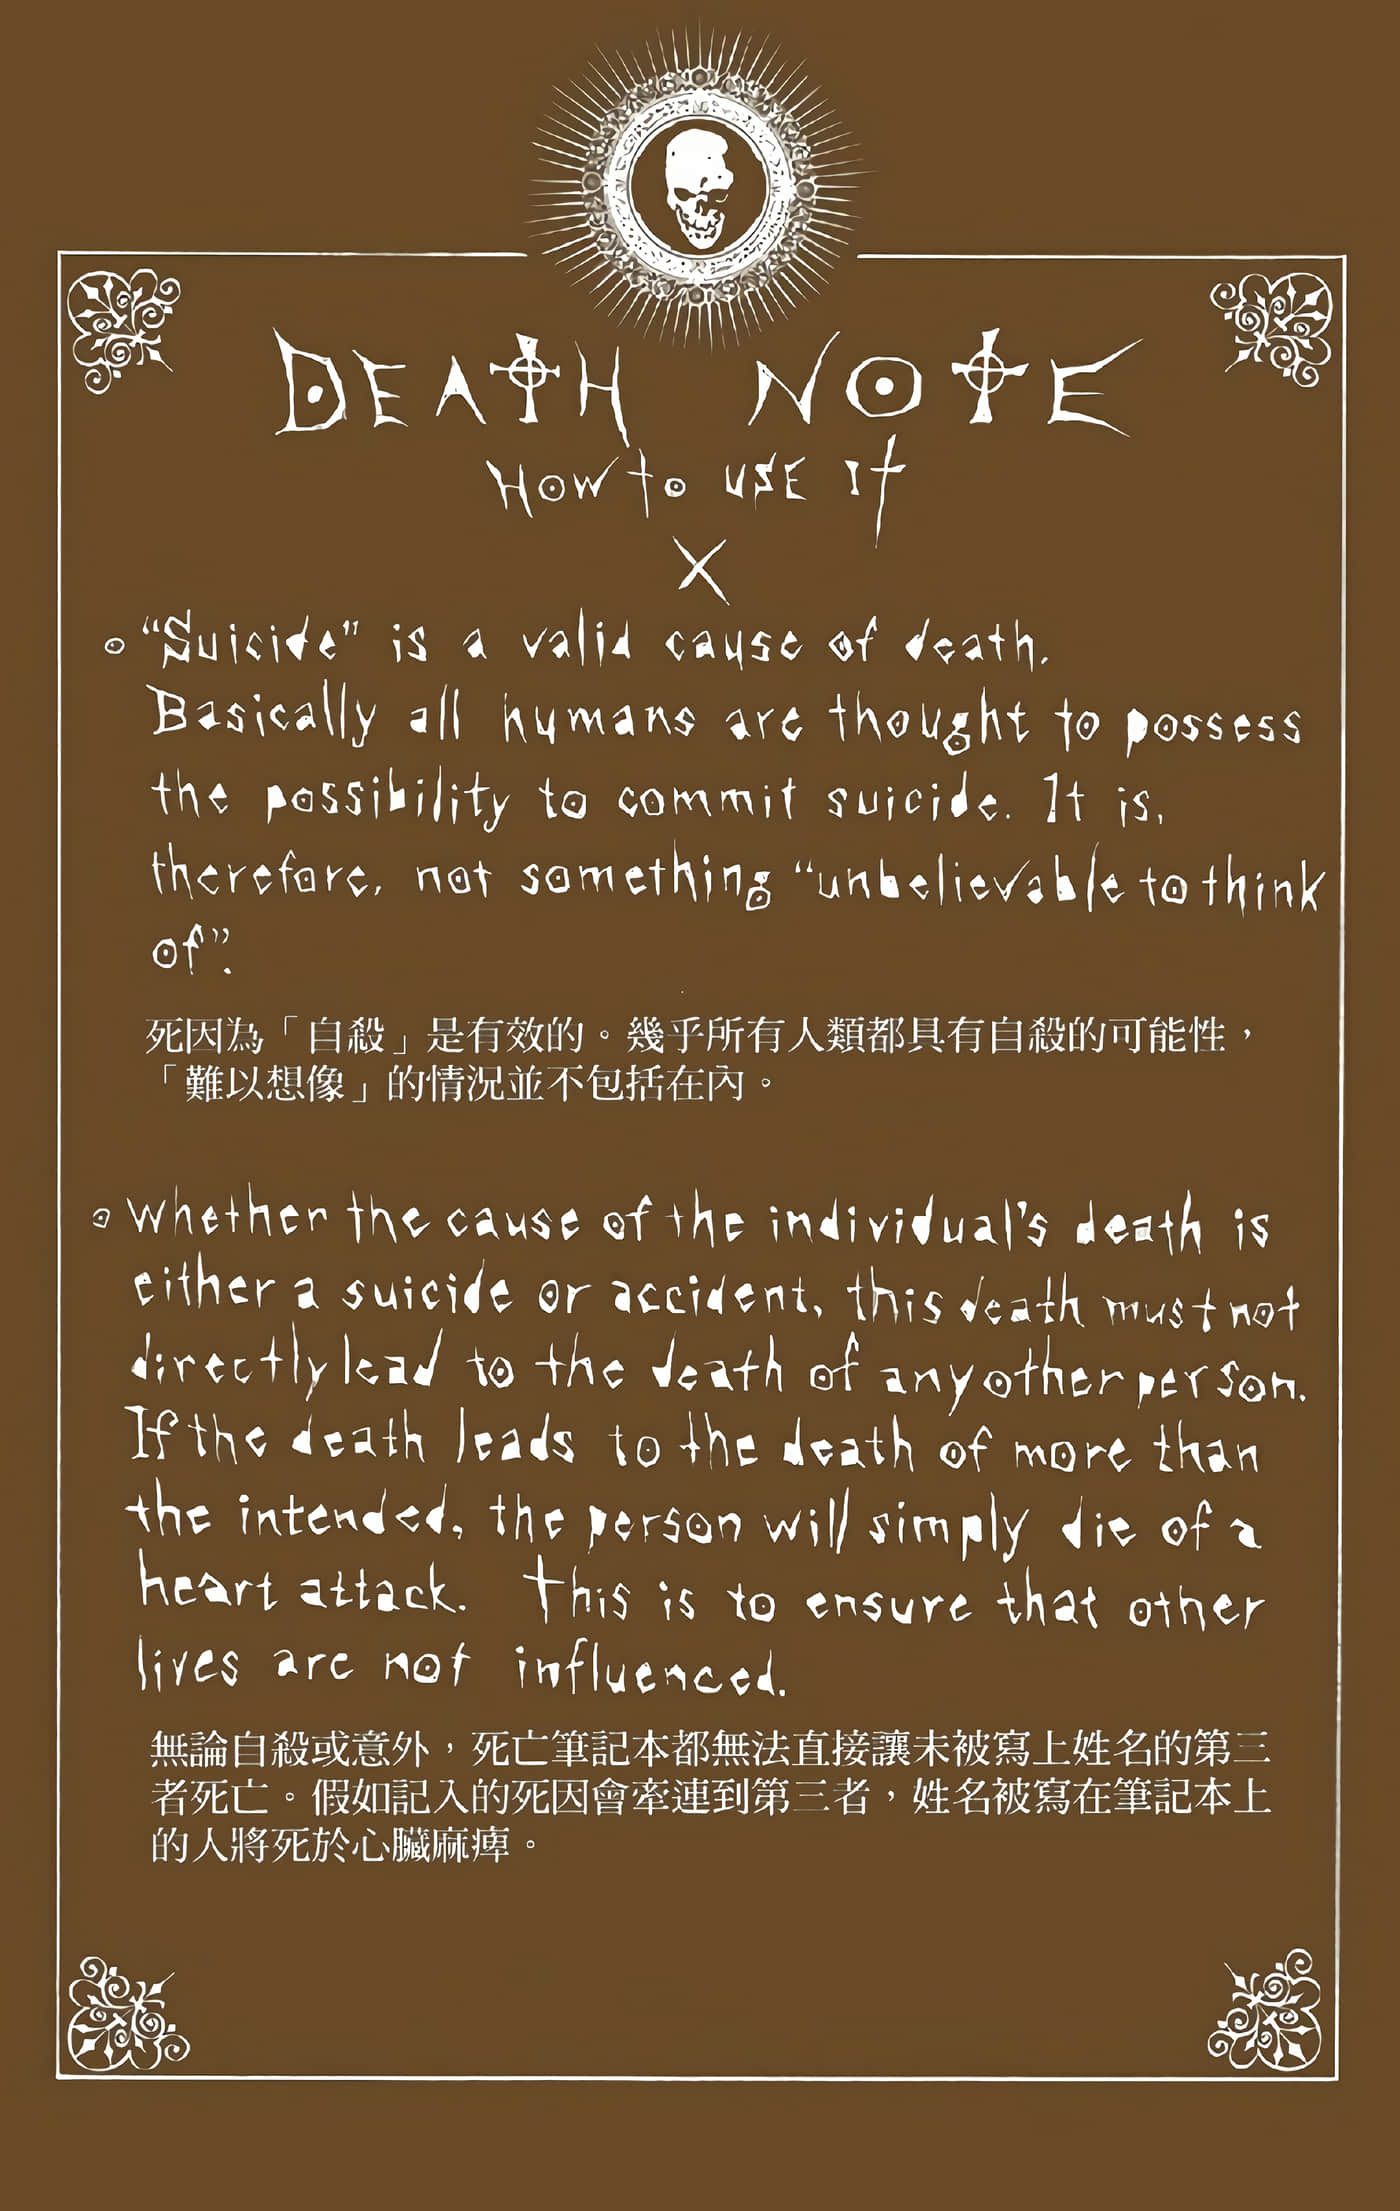 DEATH NOTE
HOW to USE It
X
"Suicide" is a valid cause of death.
Basically all humans are thought to possess
the possibility to commit suicide. It is,
therefore, not something "unbelievable to think
of".
死因為「自殺」是有效的。幾乎所有人類都具有自殺的可能性，
「難以想像」的情況並不包括在內。
Whether the cause of the individual's death is
either a suicide or accident, this death must not
directly lead to the death of any other person.
If the death leads to the death of more than
the intended, the person will simply die of a
heart attack. This is to ensure that other
lives are not influenced.
無論自殺或意外，死亡筆記本都無法直接讓未被寫上姓名的第三
者死亡。假如記入的死因會牽連到第三者，姓名被寫在筆記本上
的人將死於心臟麻痺。